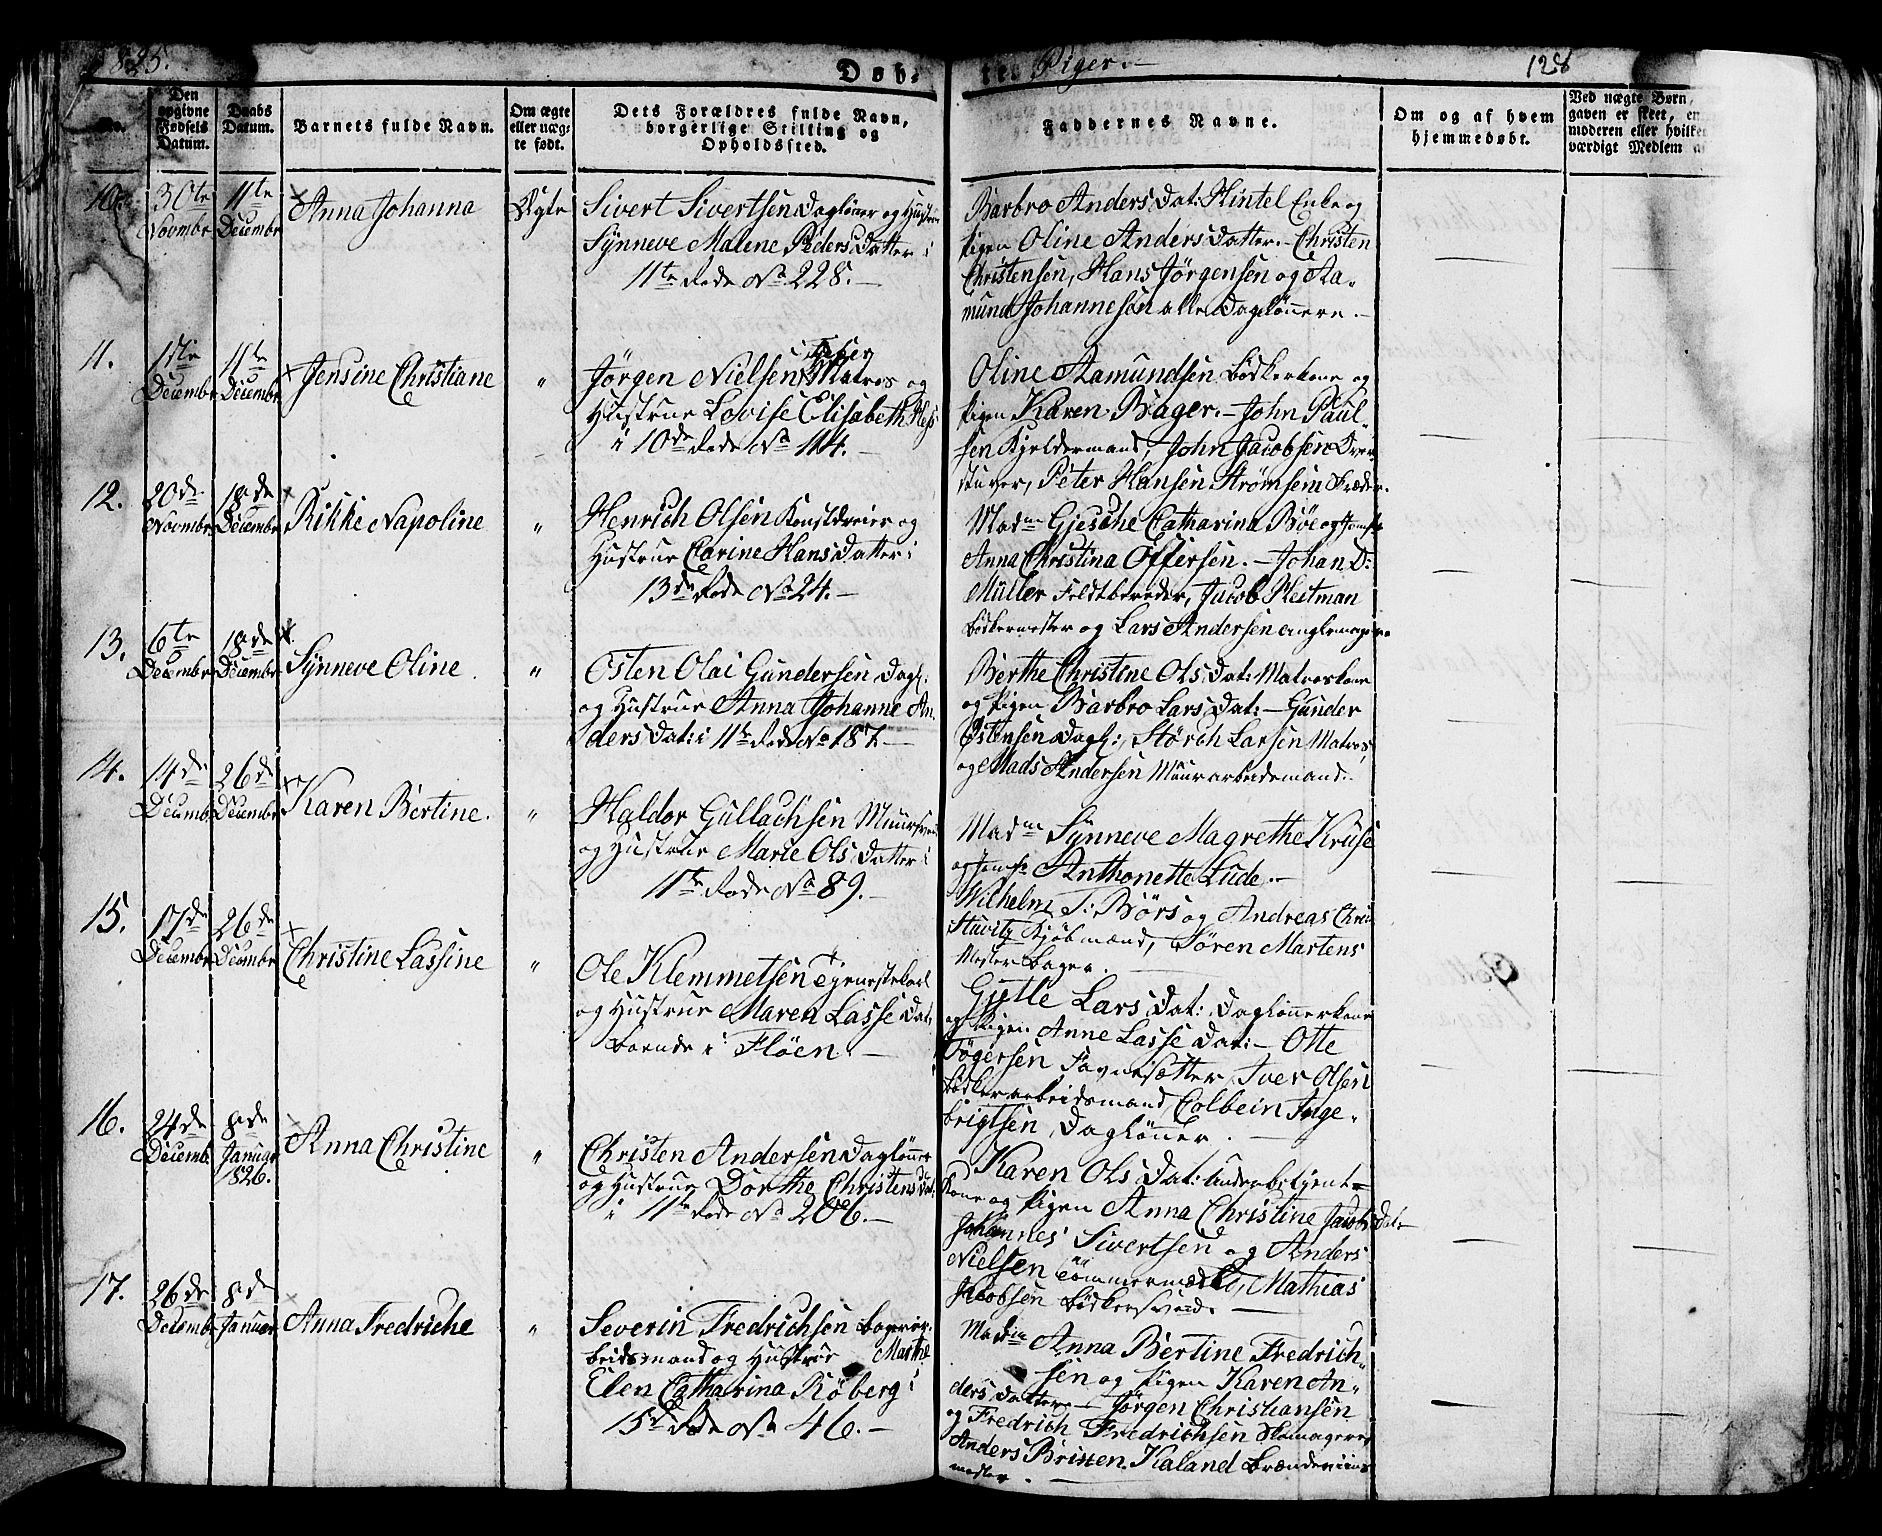 1825.
Døb-
te Piger.
128
No.
Den opgivne Fødsels Datum.
Daabs Datum.
Barnets fulde Navn.
Om ægte eller uæg- te født.
Dets Forældres fulde Navn, borgerlige Stilling og Opholdssted.
Faddernes Navne.
Om og af hvem hjemmedøbt.
Ved uægte Børn,
gaven er skeet, en
moderen eller hvilket
værdigt Medlem a
10.
30te Novembr
11te Decembr
Anna Johanna
Ægte
Sivert Sivertsen Dagløner og Hustrue
Synneve Malene Peders Datter i
11te Rode No 228.
Barbro Anders Dat: Hintel Enke og
Pigen Oline Anders Datter. - Christen
Christensen, Hans Jørgensen og Aa-
mund Johannesen alle Daglønere.
11.
1ste Decembr
11te Decembr
Jensine Christiane
"
Jørgen Nielsen Matros og
Hustrue Lovise Elisabeth Hess
i 10de Rode No 114.
Oline Aamundsen Bødkerkone og
Pigen Karen Bager. - John Paul-
sen Kjeldermand, John Jacobsen
stuver, Peter Hansen Strømsem
12.
20de Novembr
18de Decembr
Rikke Napoline
"
Henrich Olsen Konstdreier og
Hustrue Carine Hans Datter i
13de Rode No 24.
Madme Gjesche Catharina Böe og Jomfr
Anna Christina Offersen. - Johan D:
Müller Feldtbereder, Jacob Heitman
Bødkermester og Lars Andersen Anglemager
13.
6te Decembr
18de Decembr
Synneve Oline
"
Osten Olai Gundersen Dagl:
og Hustrue Anna Johanne An-
ders Dat: i 11te Rode No 187.
Berthe Christine Ols Dat: Matroskone
og Pigen Barbro Lars Dat: - Gunder
Østensen Dagl:, Störch Larsen Matros,
og Mads Andersen Muurarbeidsmand.
14.
14de Decembr
26de Decembr
Karen Bertine.
"
Haldor Gullachsen Muursvend
og Hustrue Marie Ols Datter i
11te Rode No 89.
Madme Synneve Magrethe Kruse
og Jomfr Anthonette Lude. -
Wilhelm T: Börs og Andreas Chri:
Kjøbmænd, Sören Martens
Mester Bager.
15.
17de Decembr
26de Decembr
Christine Lassine
"
Ole Klemmetsen Tjenestekarl
og Hustrue Maren Lasse Dat:
boende i Flöen. -
Gjetle Lars Dat: Daglönnerkone
og Pigen Anne Lasse Dat: - Otte
Tögersen Favnesætter, Iver Olsen
Bødkerarbeidsmand, Colbein Inge-
brigtsen, Daglönner.
16.
24de Decemb.
8de Januar 1826.
Anna Christine
"
Christen Andersen Daglønner
og Hustrue Dorthe Christens Dat:
i 11te Rode No 206. -
Karen Ols Dat: Underbetjent-
Kone og Pigen Anna Christine Jacobs Dat:
Johannes Sivertsen og Anders
Nielsen Tömmermænd, Mathias
Jacobsen Bødkersvend.
17.
26de Decembr
8de Januar
Anna Fredriche
"
Severin Fredrichsen Bagerar-
beidsmand og Hustrue Marthe
Elen Catharina Röberg i
15de Rode No 46. -
Madme Anna Bertine Fredrich-
sen og Pigen Karen An-
ders Datter. - Jørgen Christiansen
og Fredrich Fredrichsen Skomagere,
Anders Britten Kaland Brænderiins
mester.